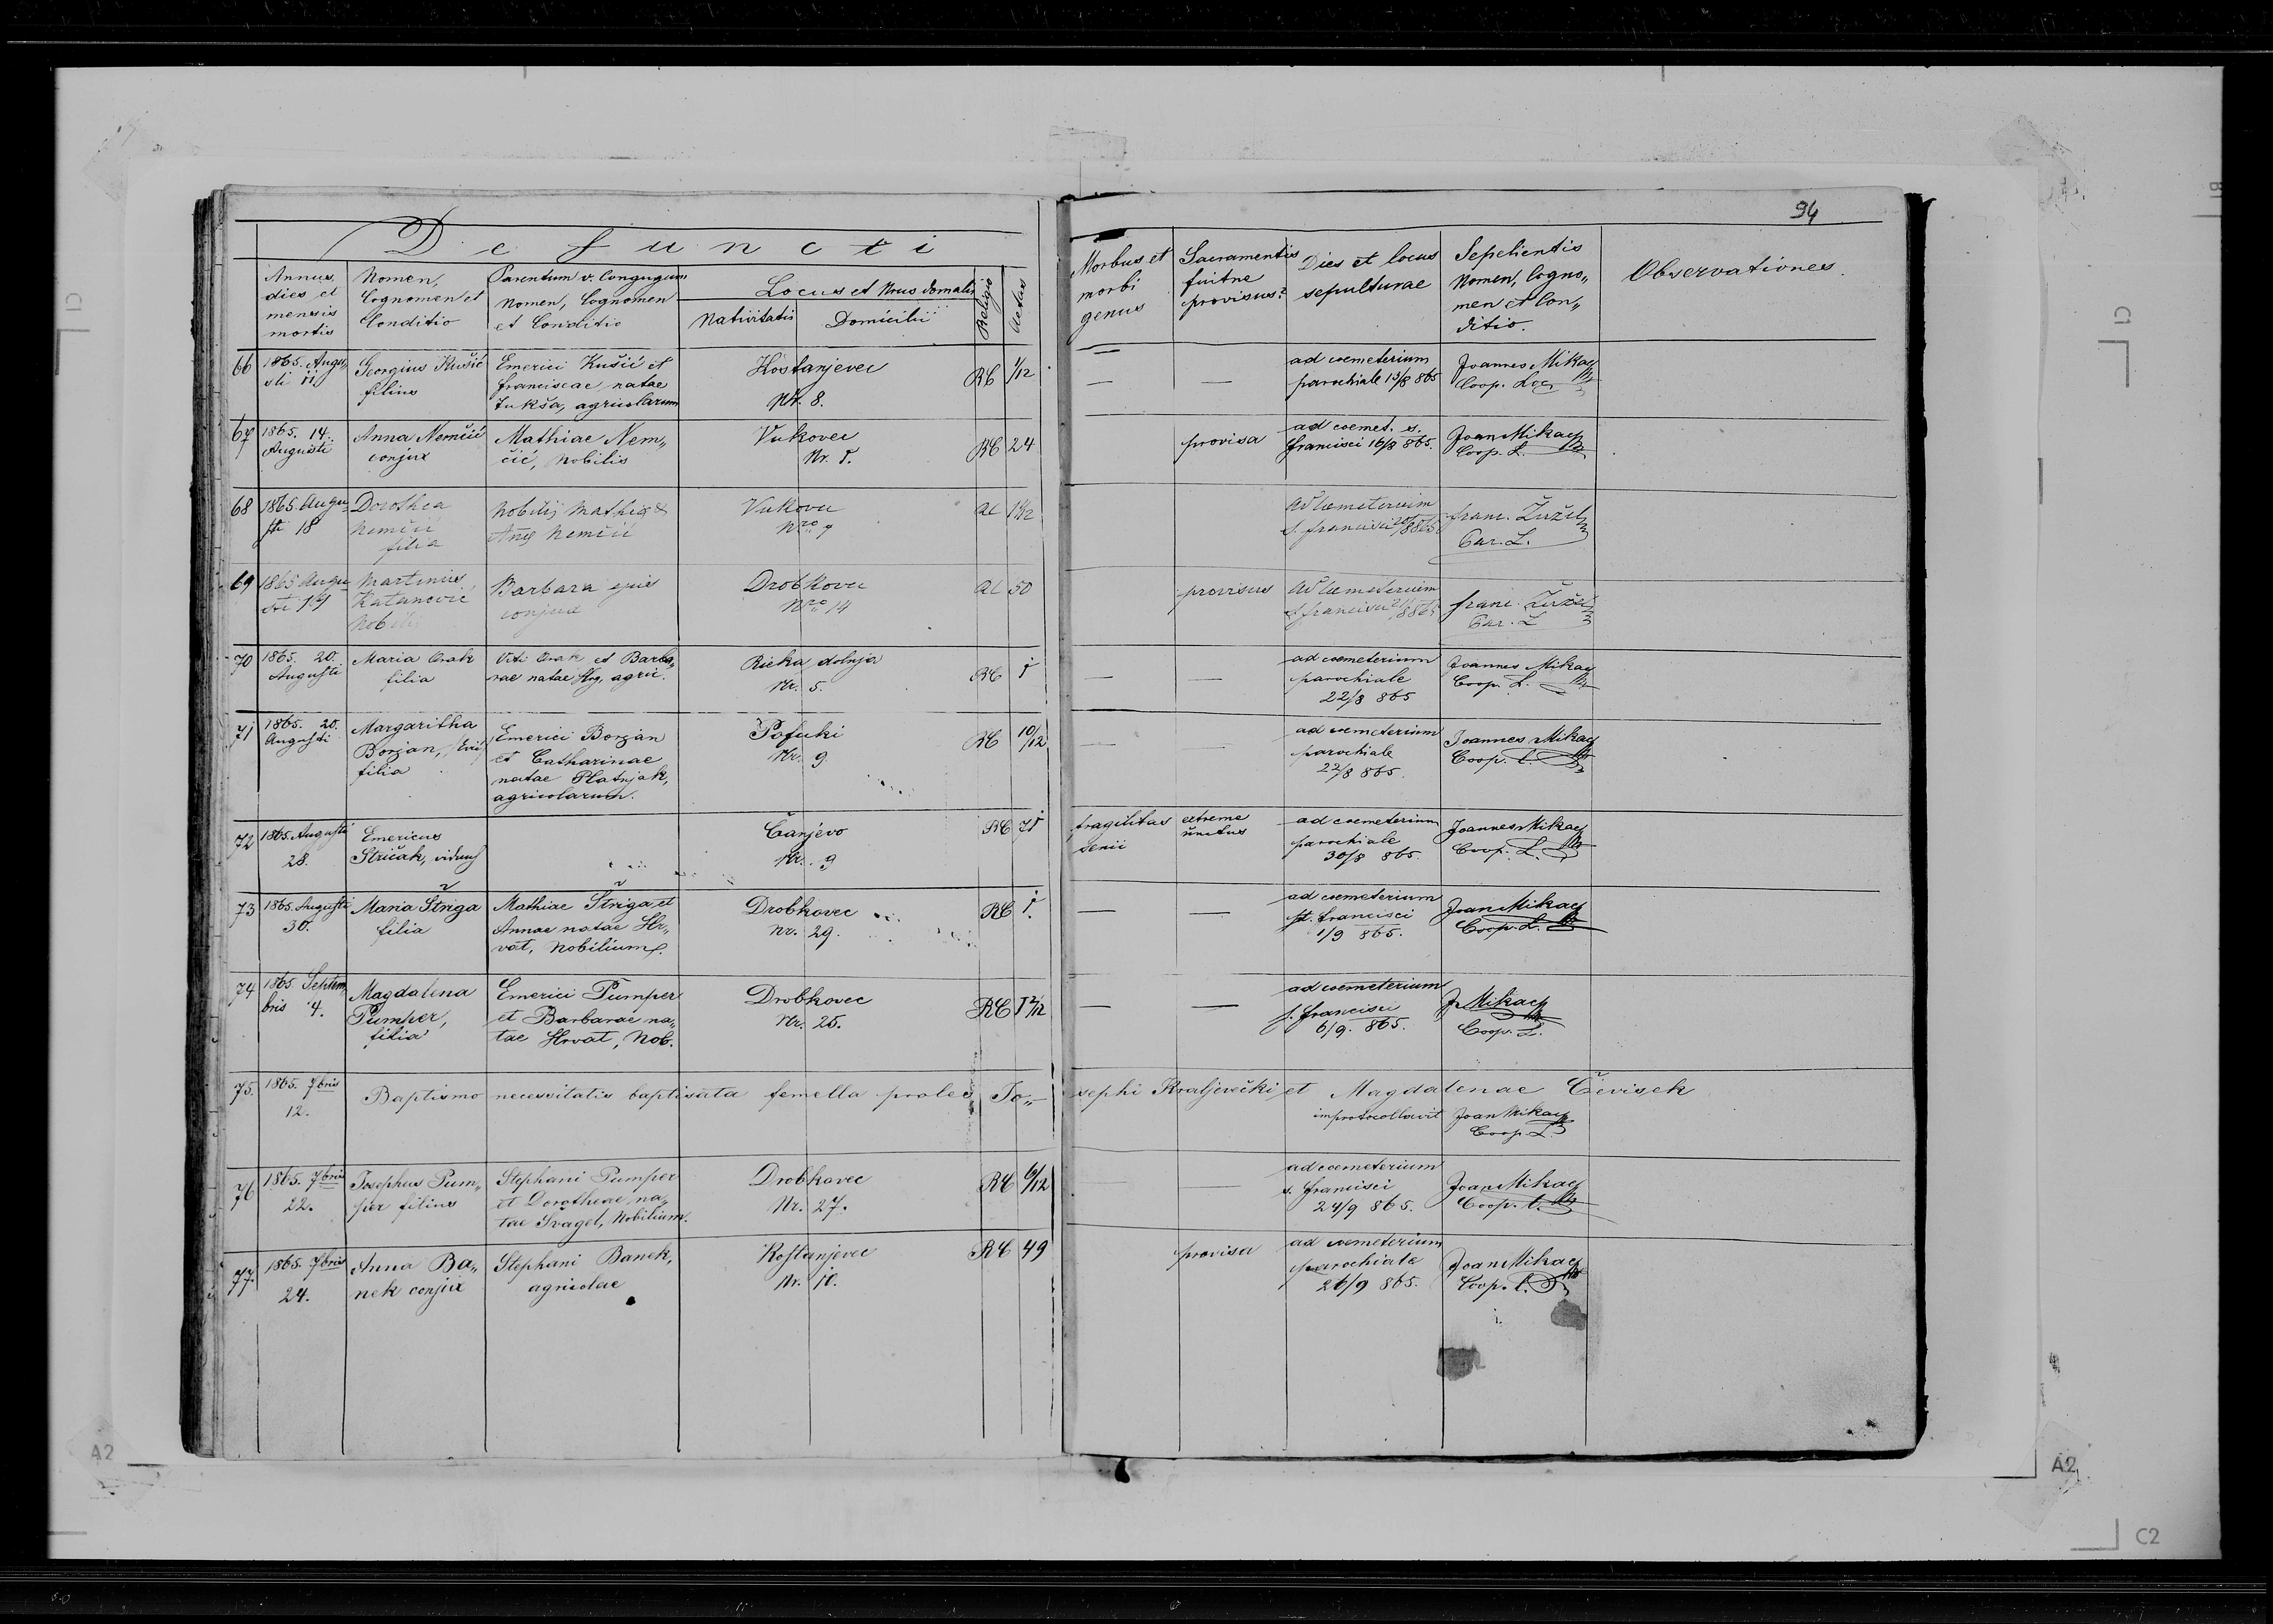 94
Defuncti
Annus, dies et mensis mortis
Nomen, Cognomen et Conditio
Parentum v. Conjugum Nomen, Cognomen et Conditio
Locus et Nrus domalis
Nativitatis
Domicilii
Religio
Aetas
Morbus et morbi genus
Sacramentis fuitne provisus?
Dies et locus sepulturae
Sepelientis Nomen, Cogno„ men et Con„ ditio.
Observationes.
66
1865. Augu„
sti 11
Georgius Kušić
filius
Emerici Kušić et
Franciscae natae
Jukša, agricolarum
Kostanjevec
Nr. 8.
RC
1/12
—
—
ad coemeterium
parochiale 13/8 865
Joannes Mikac
Coop. Loc.
67
1865. 14.
Augusti
Anna Nemčić
conjux
Mathiae Nem„
čić, Nobilis
Vukovec
Nr. 1.
RC
24
provisa
ad coemet. s.
Francisci 16/8 865.
Joan Mikac
Coop. L.
68
1865. Augu
sti 18
Dorothea
Nemčić
filia
Nobilis Mathiae &
Annae Nemčić
Vukovec
Nro 9
RC
Ad coemeterium
S. Francisci
Franc. Žužel
Par. L.
69
1865 Augu
sti 19
Martinus
Katanović
Nobilis
Barbara ejus
conjux
Drobkovec
Nro 14
RC
50
provisus
Ad coemeterium
S. Francisci 21/8 865
Franc. Žužel
Par. L
70
1865. 20.
Augusti
Maria Orak
filia
Viti Orak et Barba„
rae natae Hrg, agric.
Rieka dolnja
Nr. 5.
RC
1
—
—
ad coemeterium
parochiale
22/8 865
Joannes Mikac
Coop. L.
71
1865. 20.
Augusti
Margaritha
Borjan,
filia
Emerici Borjan
et Catharinae
natae Platnjak,
agricolarum.
Pofuki
Nr. 9
RC
10/12
—
—
ad coemeterium
parochiale
22/8 865.
Joannes Mikac
Coop. L.
72
1865. Augusti
28.
Emericus
Stričak, viduus
Čanjevo
Nr. 9
RC
71
fragilitas
senii
extreme
unctus
ad coemeterium
parochiale
30/8 865.
Joannes Mikac
Coop. L.
73
1865. Augusti
30.
Maria Striga
filia
Mathiae Striga et
Annae natae Hr„
vat, Nobilium.
Drobkovec
Nr. 29.
RC
1.
—
—
ad coemeterium
st. Francisci
1/9 865.
Joan Mikac
Coop. L.
74
1865 Septem
bris 4.
Magdalena
Pumper,
filia
Emerici Pumper
et Barbarae na„
tae Hrvat, Nob.
Drobkovec
Nr. 25.
RC
1 2/12
—
—
ad coemeterium
s. Francisci
6/9. 865.
J. Mikac
Coop. L.
75.
1865. 7bris
12.
Baptismo necessitatis baptisata femella proles Jo„sephi Kraljevečki et Magdalenae Čevisek
improtocollavit
Joan Mikac
Coop. L.
76
1865. 7bris
22.
Josephus Pum„
per filius
Stephani Pumper
et Dorotheae na„
tae Švagel, Nobilium.
Drobkovec
Nr. 27.
RC
6/12
—
—
ad coemeterium
s. Francisci
24/9 865.
Joan Mikac
Coop. L.
77.
1865. 7bris
24.
Anna Ba„
nek conjux
Stephani Banek,
agricolae
Kostanjevec
Nr. 10.
RC
49
provisa
ad coemeterium
parochiale
26/9 865.
Joan Mikac
Coop. L.
C1
C1
A2
A2
C2